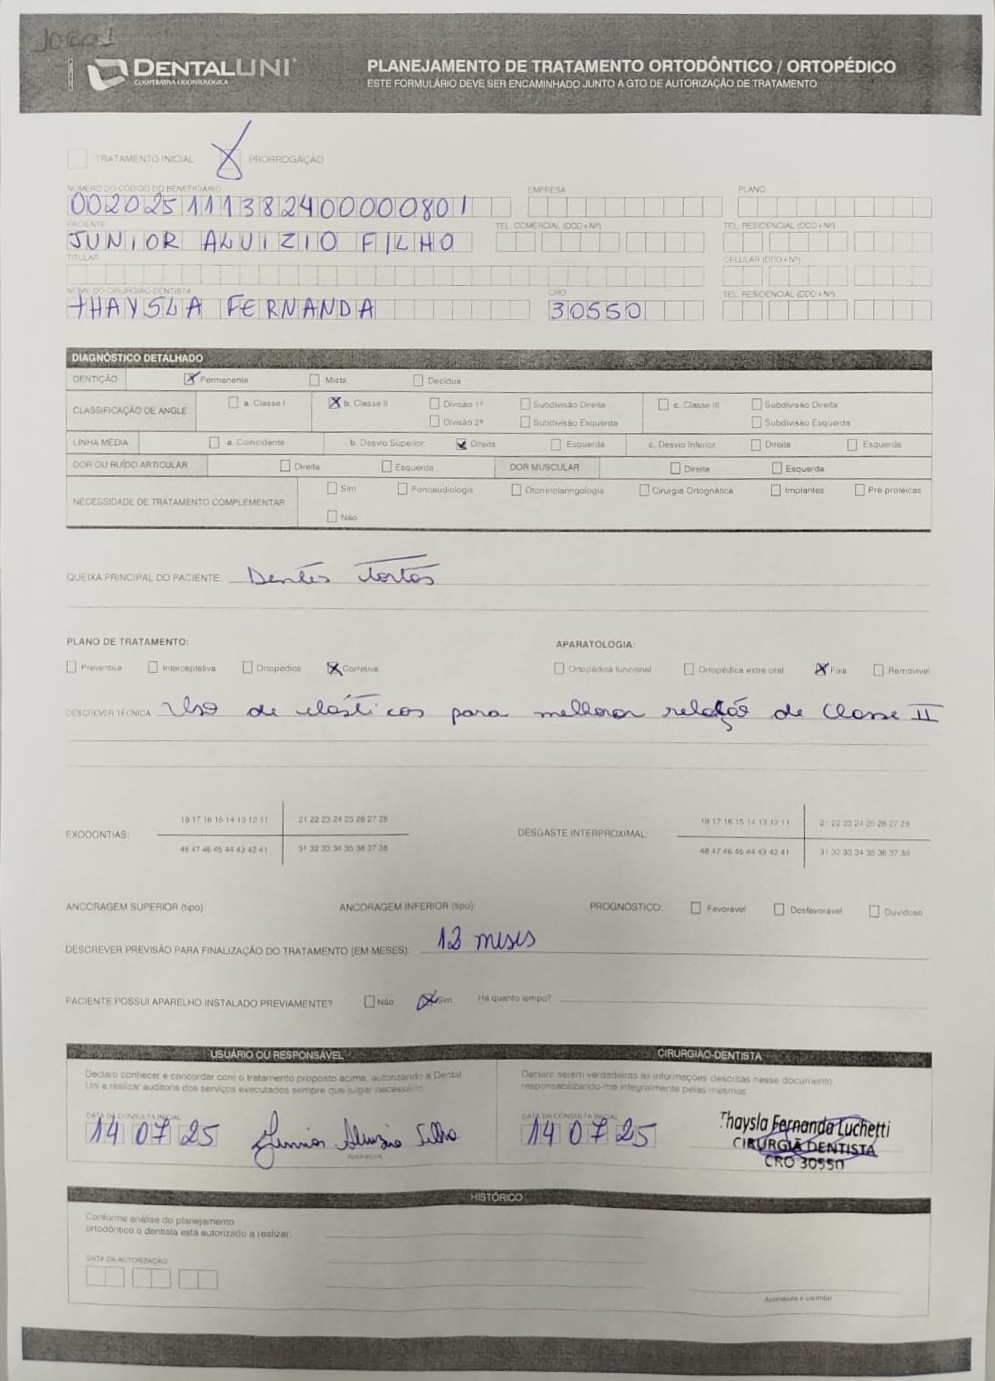 DENTALUNI
COOPERATIVA ODONTOLÓGICA
PLANEJAMENTO DE TRATAMENTO ORTODÔNTICO / ORTOPÉDICO
ESTE FORMULÁRIO DEVE SER ENCAMINHADO JUNTO A GTO DE AUTORIZAÇÃO DE TRATAMENTO
TRATAMENTO INICIAL PRORROGAÇÃO
NÚMERO DO CÓDIGO DO BENEFICIÁRIO EMPRESA PLANO
002025111382400000801
PACIENTE TEL. COMERCIAL (DDD + Nº) TEL. RESIDENCIAL (DDD + Nº)
JUNIOR ALUIZIO FILHO
TITULAR CELULAR (DDD + Nº)
NOME DO CIRURGIÃO DENTISTA CRO TEL. RESIDENCIAL (DDD + Nº)
THAYSLA FERNANDA 30550
DIAGNÓSTICO DETALHADO
DENTIÇÃO Permanente Mista Decídua
CLASSIFICAÇÃO DE ANGLE a. Classe I b. Classe II Divisão 1ª Subdivisão Direita c. Classe III Subdivisão Direita
Divisão 2ª Subdivisão Esquerda Subdivisão Esquerda
LINHA MÉDIA a. Coincidente b. Desvio Superior: Direita Esquerda c. Desvio Inferior: Direita Esquerda
DOR OU RUÍDO ARTICULAR Direita Esquerda DOR MUSCULAR Direita Esquerda
NECESSIDADE DE TRATAMENTO COMPLEMENTAR Sim Fonoaudiologia Otorrinolaringologia Cirurgia Ortognática Implantes Pré-protéticas
Não
QUEIXA PRINCIPAL DO PACIENTE: Dentes tortos
PLANO DE TRATAMENTO: APARATOLOGIA:
Preventiva Interceptativa Ortopédica Corretiva Ortopédica funcional Ortopédica extra-oral Fixa Removível
DESCREVER TÉCNICA Uso de elásticos para melhorar relação de Classe II
18 17 16 15 14 13 12 11 21 22 23 24 25 26 27 28 18 17 16 15 14 13 12 11 21 22 23 24 25 26 27 28
EXODONTIAS: DESGASTE INTERPROXIMAL:
48 47 46 45 44 43 42 41 31 32 33 34 35 36 37 38 48 47 46 45 44 43 42 41 31 32 33 34 35 36 37 38
ANCORAGEM SUPERIOR (tipo) ANCORAGEM INFERIOR (tipo) PROGNÓSTICO: Favorável Desfavorável Duvidoso
DESCREVER PREVISÃO PARA FINALIZAÇÃO DO TRATAMENTO (EM MESES): meses
PACIENTE POSSUI APARELHO INSTALADO PREVIAMENTE? Não Sim Há quanto tempo?
USUÁRIO OU RESPONSÁVEL CIRURGIÃO-DENTISTA
Declaro conhecer e concordar com o tratamento proposto acima, autorizando a Dental Declaro serem verdadeiras as informações descritas nesse documento,
Uni a realizar auditoria dos serviços executados sempre que julgar necessário. responsabilizando-me integralmente pelas mesmas.
DATA DA CONSULTA INICIAL DATA DA CONSULTA INICIAL
14 07 25 Junior Aluizio Filho 14 07 25 Thaysla Fernanda Luchetti
Assinatura CIRURGIÃ DENTISTA
CRO 30550
HISTÓRICO
Conforme análise do planejamento
ortodôntico o dentista está autorizado a realizar:
DATA DA AUTORIZAÇÃO
Assinatura e carimbo